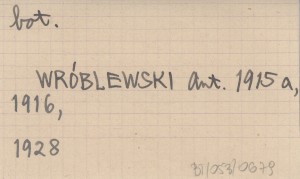 bot.
WRÓBLEWSKI Ant. 1915a,
1916,
1928
31/053/0679